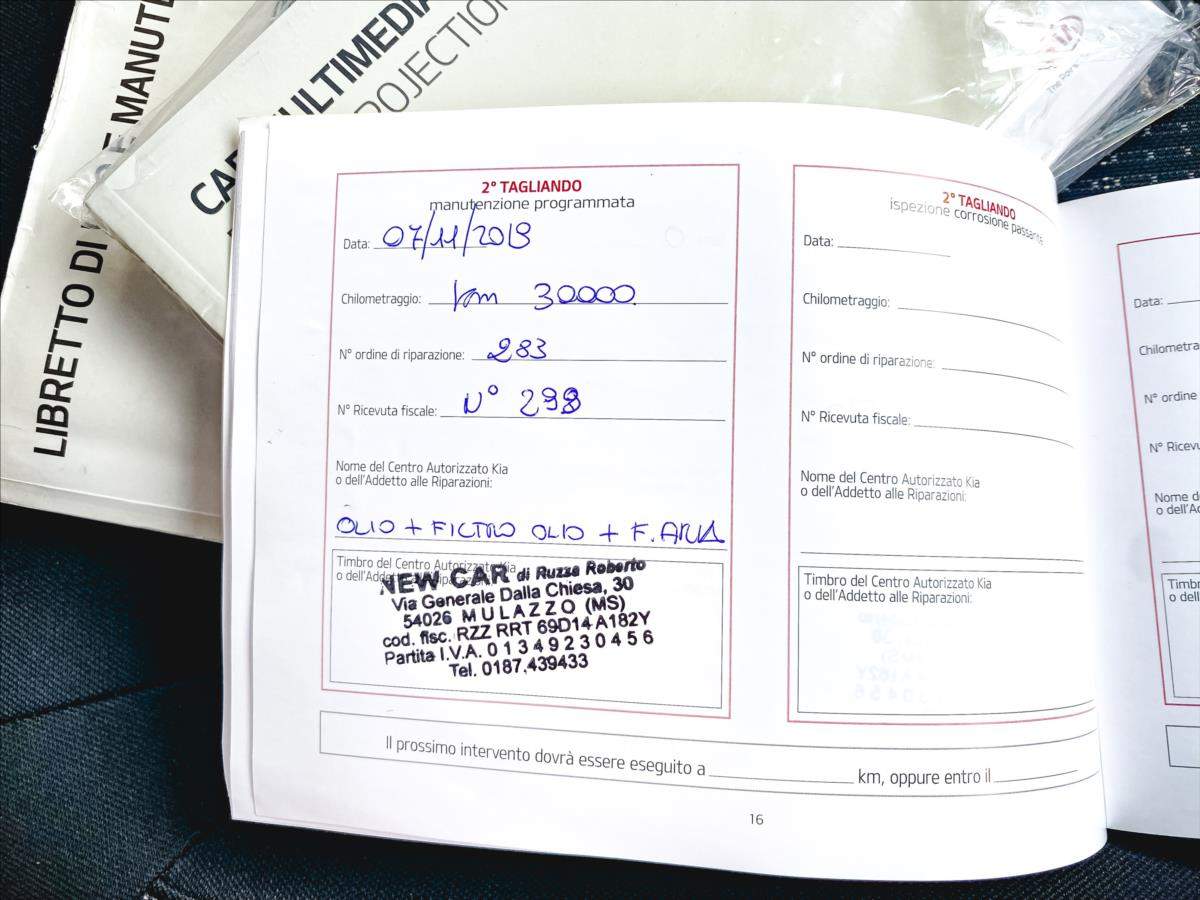 LIBRETTO DI
MANUTE
CAR
ULTIMEDIA
PROJECTION
2° TAGLIANDO
manutenzione programmata
Data: 07/11/2019
Chilometraggio: km 30000
N° ordine di riparazione: 283
N° Ricevuta fiscale: N° 298
Nome del Centro Autorizzato Kia
o dell'Addetto alle Riparazioni:
OLIO + FILTRO OLIO + F. ARIA
Timbro del Centro Autorizzato Kia
o dell'Addetto alle Riparazioni:
NEW CAR di Ruzza Roberto
Via Generale Dalla Chiesa, 30
54026 MULAZZO (MS)
cod. fisc. RZZ RRT 69D14 A182Y
Partita I.V.A. 0 1 3 4 9 2 3 0 4 5 6
Tel. 0187.439433
2° TAGLIANDO
ispezione corrosione passante
Data:
Chilometraggio:
N° ordine di riparazione:
N° Ricevuta fiscale:
Nome del Centro Autorizzato Kia
o dell'Addetto alle Riparazioni:
Timbro del Centro Autorizzato Kia
o dell'Addetto alle Riparazioni:
Il prossimo intervento dovrà essere eseguito a km, oppure entro il
16
Data:
Chilometra
N° ordine
N° Ricevu
Nome d
o dell'Ad
Timb
o dell